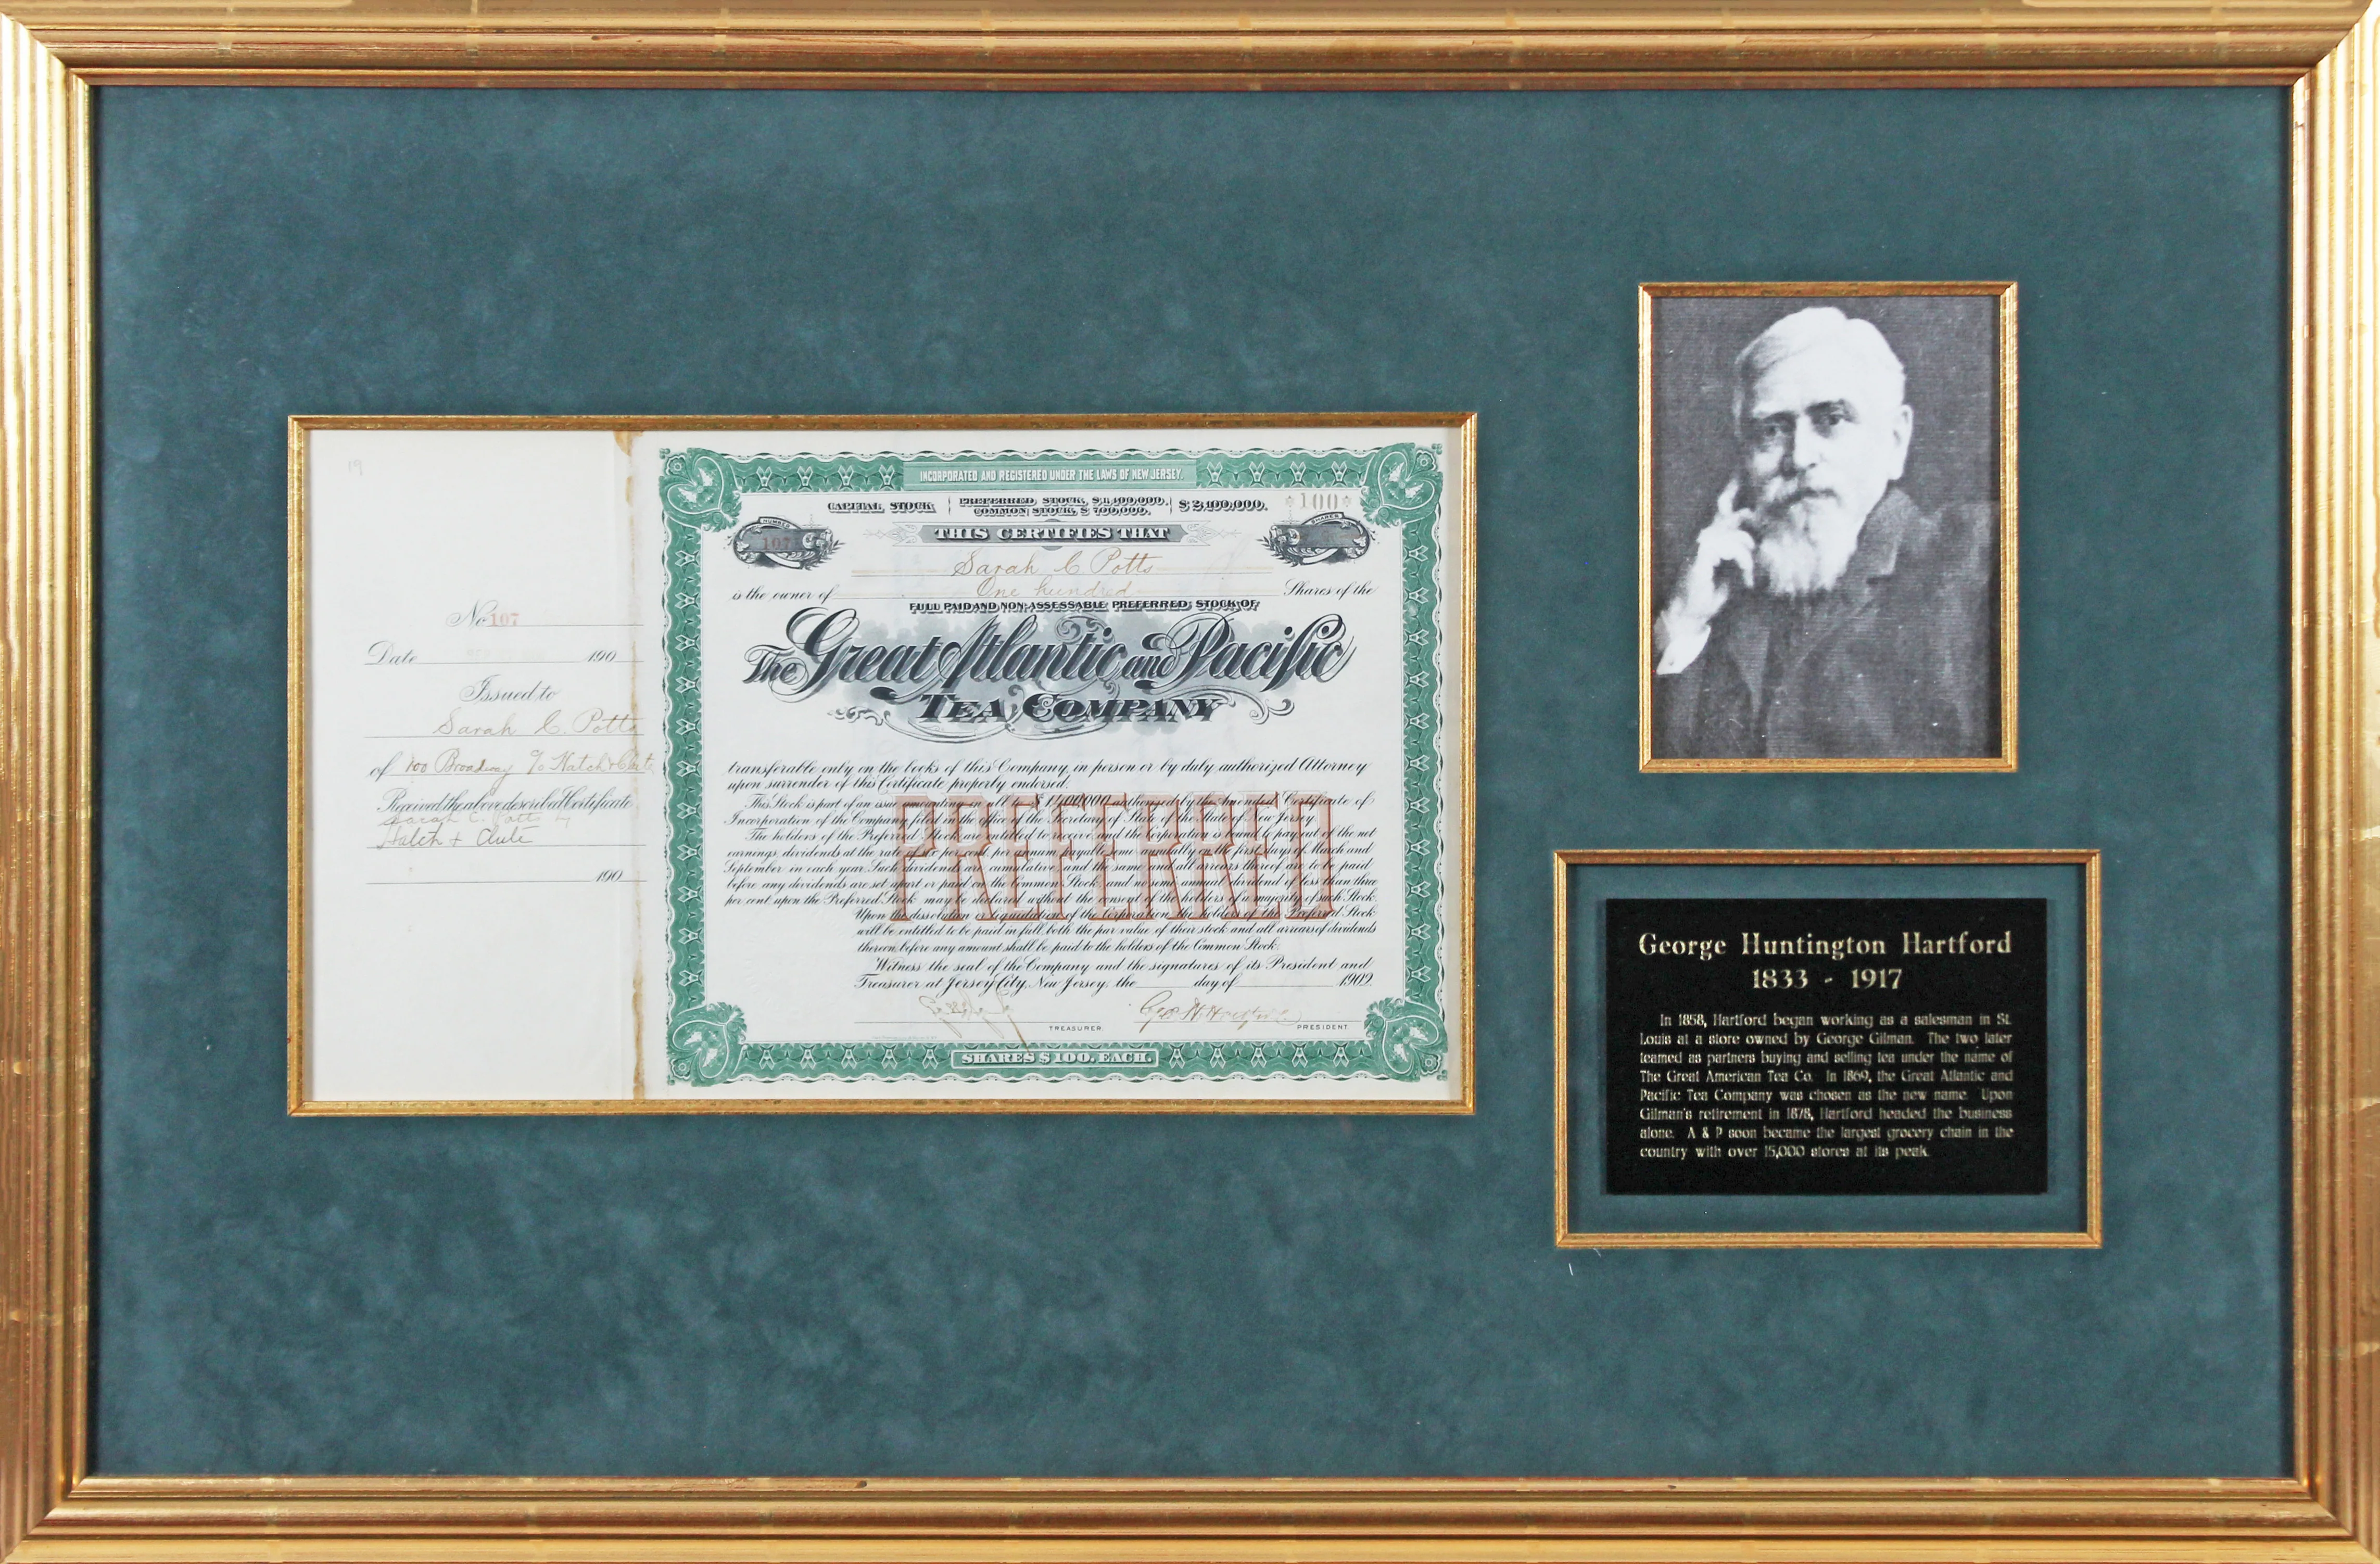 19
No 107
Date 190
Issued to
Sarah C. Potts
of 100 Broadway c/o Hatch & Clute
Received the above described Certificate
Sarah C. Potts
Hatch + Clute
190
INCORPORATED AND REGISTERED UNDER THE LAWS OF NEW JERSEY.
CAPITAL STOCK PREFERRED STOCK, $1,400,000. COMMON STOCK, $700,000. $2,100,000.
100
NUMBER
107
SHARES
THIS CERTIFIES THAT
Sarah C Potts
is the owner of One hundred Shares of the
FULL PAID AND NON-ASSESSABLE PREFERRED STOCK OF
The Great Atlantic and Pacific
TEA COMPANY
transferable only on the books of this Company, in person or by duly authorized Attorney
upon surrender of this Certificate properly endorsed.
This Stock is part of an issue amounting in all to $1,400,000 authorized by the Amended Certificate of
Incorporation of the Company, filed in the office of the Secretary of State of the State of New Jersey.
The holders of the Preferred Stock are entitled to receive and the Corporation is bound to pay out of the net
earnings, dividends at the rate of six per cent. per annum, payable semi-annually on the first days of March and
September in each year. Such dividends are cumulative, and the same and all arrears thereof are to be paid
before any dividends are set apart or paid on the Common Stock, and no semi-annual dividend of less than three
per cent. upon the Preferred Stock may be declared without the consent of the holders of a majority of such Stock.
Upon the dissolution or liquidation of the Corporation, the holders of the Preferred Stock
will be entitled to be paid in full both the par value of their stock and all arrears of dividends
thereon, before any amount shall be paid to the holders of the Common Stock.
PREFERRED
Witness the seal of the Company and the signatures of its President and
Treasurer at Jersey City, New Jersey, the day of 1902.
Geo. H. Hartford
TREASURER. PRESIDENT
SHARES $100. EACH.
George Huntington Hartford
1833 - 1917
In 1858, Hartford began working as a salesman in St.
Louis at a store owned by George Gilman. The two later
teamed as partners buying and selling tea under the name of
The Great American Tea Co. In 1869, the Great Atlantic and
Pacific Tea Company was chosen as the new name. Upon
Gilman's retirement in 1878, Hartford headed the business
alone. A & P soon became the largest grocery chain in the
country with over 15,000 stores at its peak.